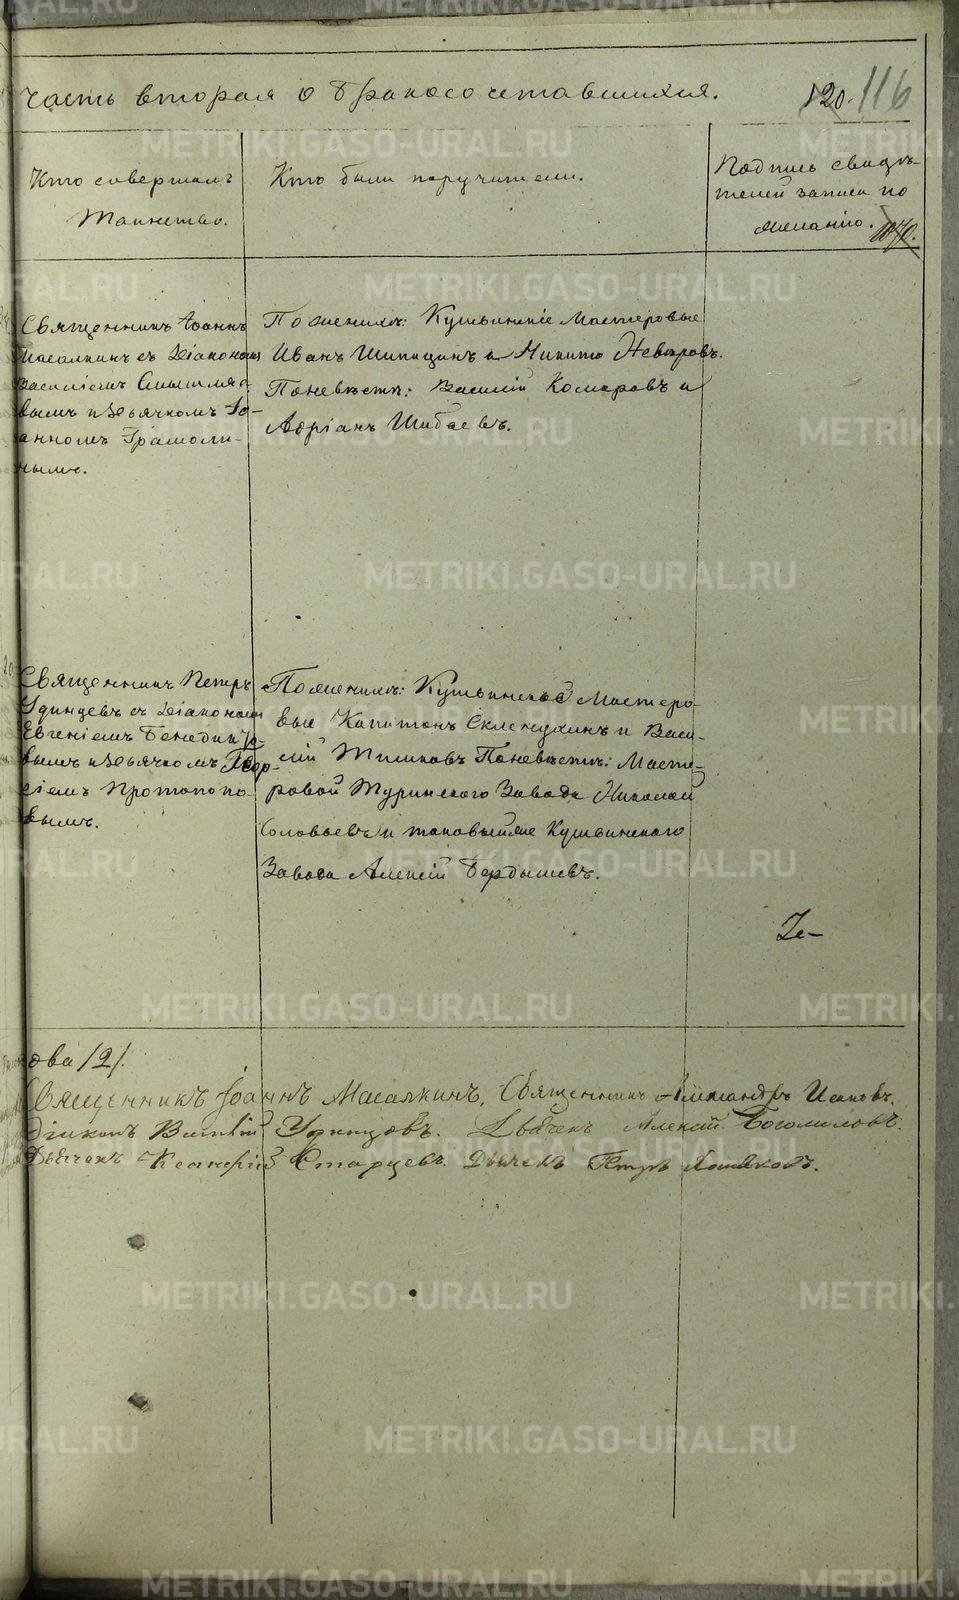 Часть вторая о бракосочетавшихся.
120. 116
Кто совершалъ
Таинство.
Кто были поручители.
Подпись свидѣ-
телей записи по
желанію.
Священникъ Іоаннъ
Масалкинъ съ Діакономъ
Василіемъ
вымъ и Дьячкомъ Іо-
анномъ Грамоли-
нымъ.
По женихѣ: Кушвинскіе Мастеровые
Иванъ Шипицинъ и Никита Невѣровъ.
По невѣстѣ: Василій Комаровъ и
Адріанъ Шибаевъ.
Священникъ Петръ
Удинцевъ съ Діакономъ
Евгеніемъ Бенедикто-
вымъ и Дьячкомъ Геор-
гіемъ Протопопо-
вымъ.
По женихѣ: Кушвинскаго Мастеро-
вые Капитонъ и Васи-
лій По невѣстѣ: Масте-
ровой Туринскаго Завода Николай
Соловьевъ и таковый же Кушвинскаго
Завода Алексій Бердышевъ.
ова /2/.
Священникъ Іоаннъ Масалкинъ. Священникъ Александръ
Діаконъ Удинцовъ. Дьячекъ Алексій Богомоловъ.
Дьячекъ Старцевъ. Дьячекъ Петръ Хомяковъ.
METRIKI.GASO-URAL.RU